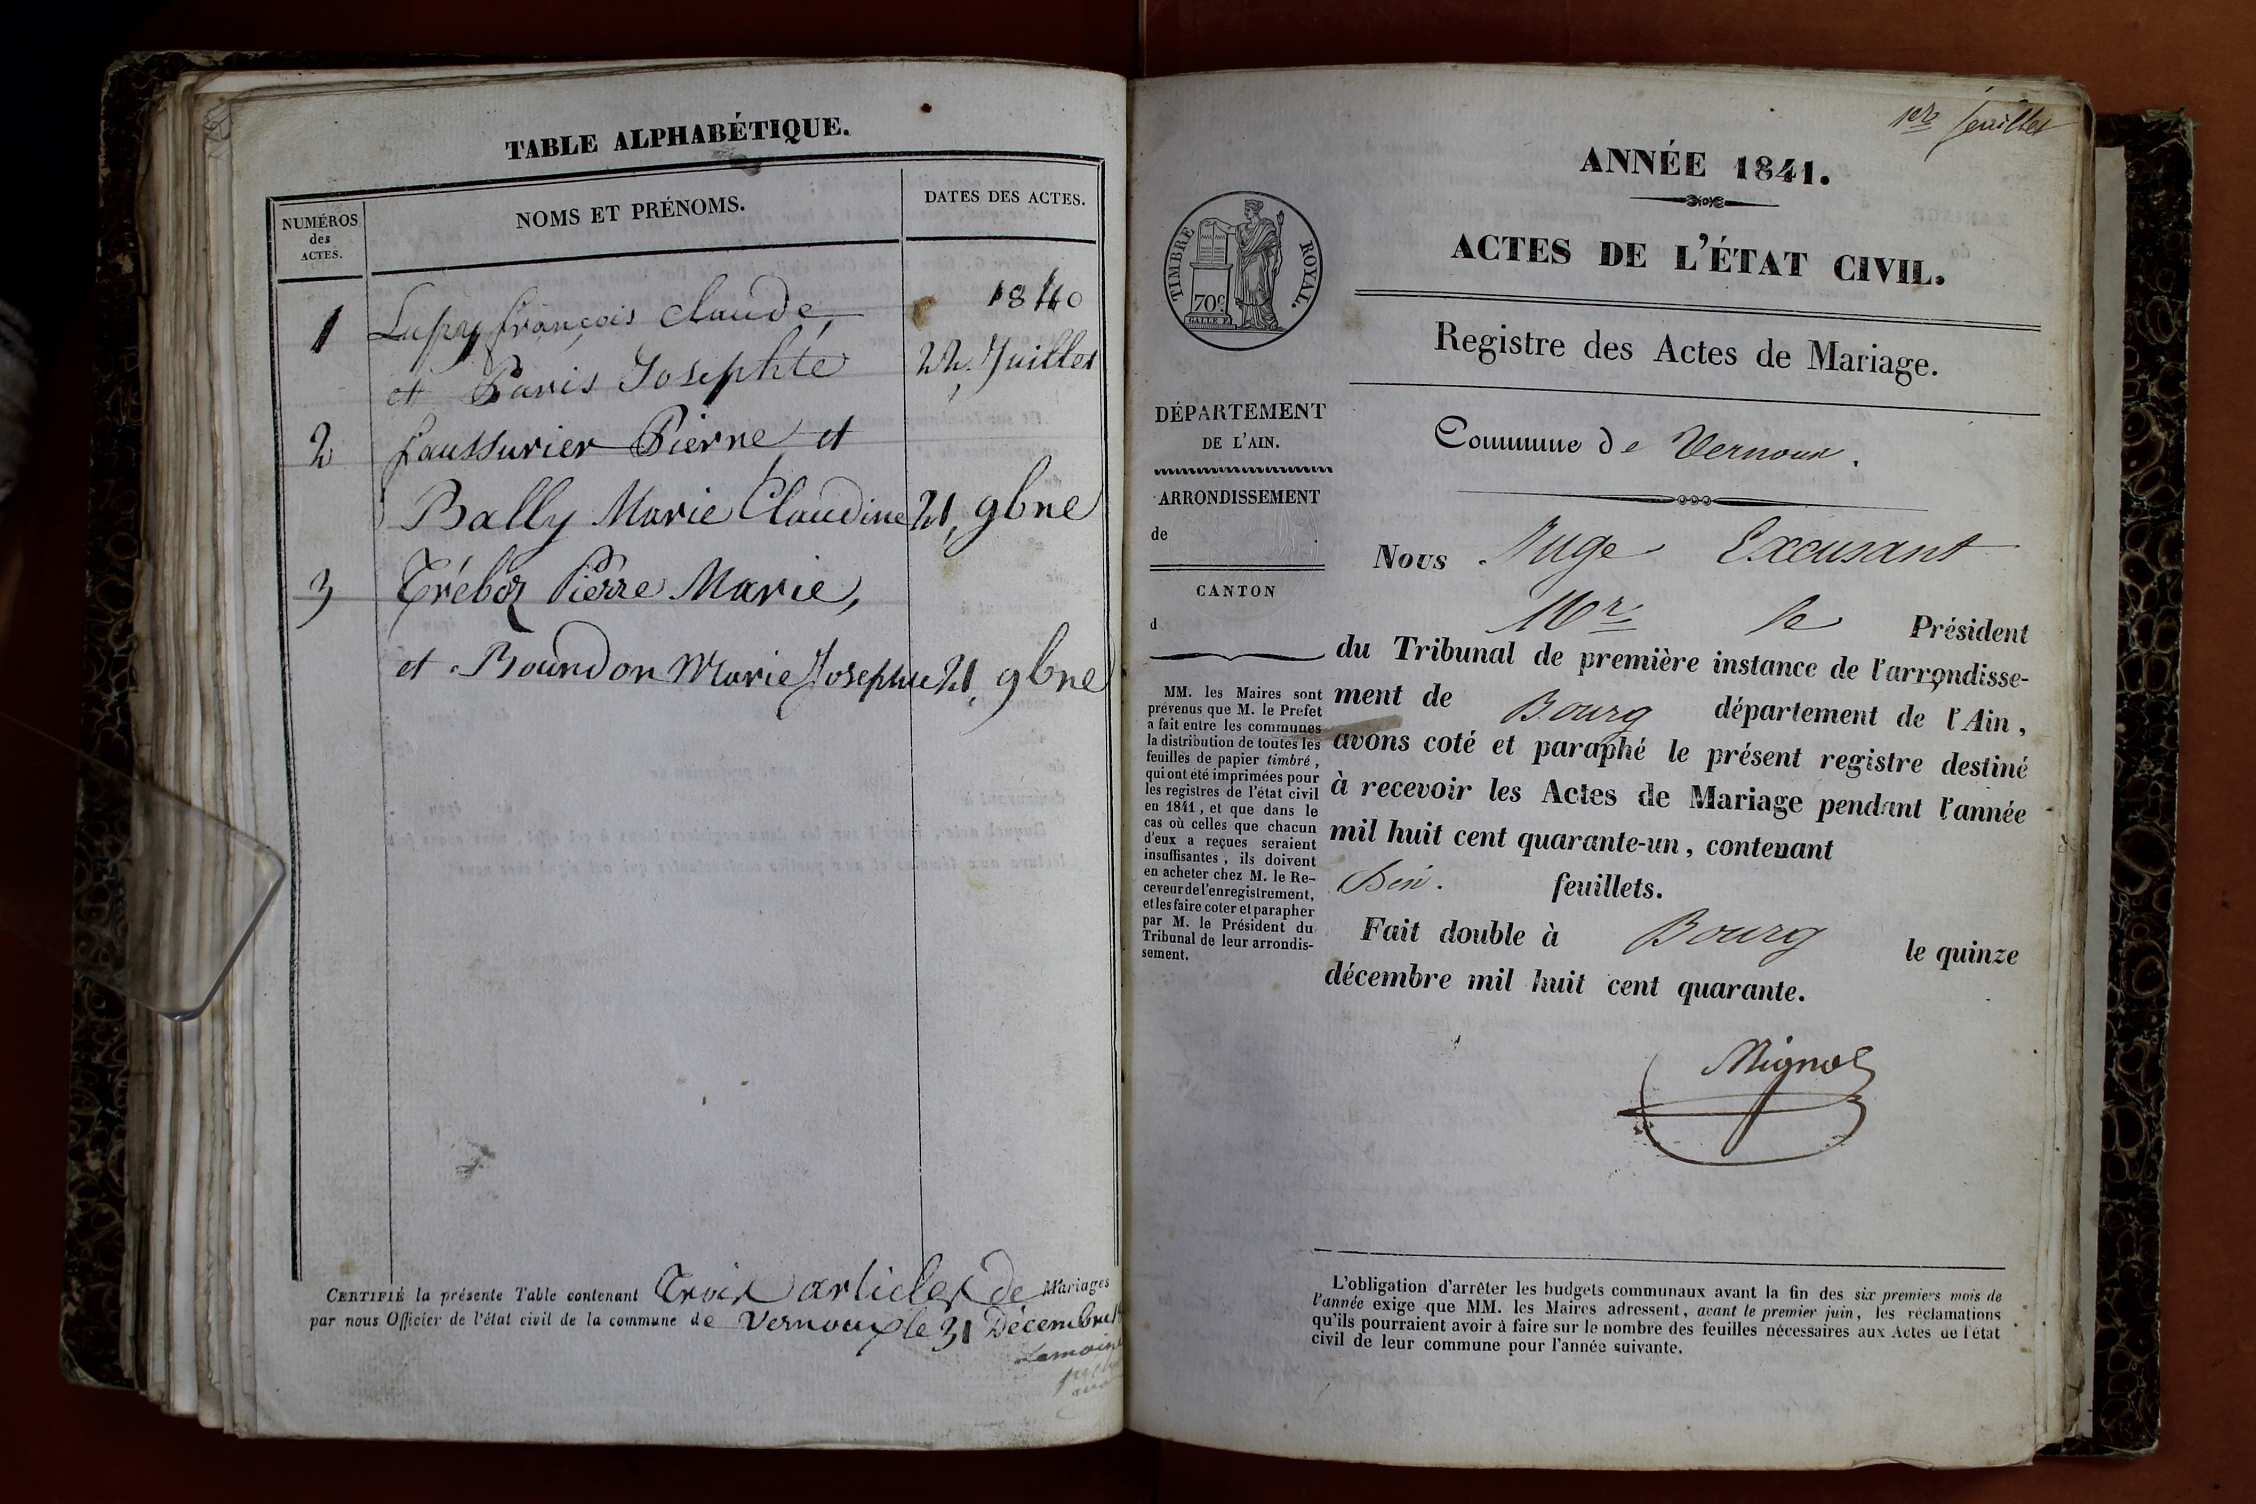 TABLE ALPHABÉTIQUE.
NUMÉROS
des
ACTES.
NOMS ET PRÉNOMS.
DATES DES ACTES.
1840
1 Lupy françois Claude,
et Paris Josephte 22, Juillet
2 faussurier Pierre et
Bally Marie Claudine 21, 9bre
3 Pierre Marie,
et Bourdon Marie Josephte 21, 9bre
CERTIFIÉ la présente Table contenant Trois articles de Mariages
par nous Officier de l'état civil de la commune de Vernoux le 31 Décembre
1er feuillet
ANNÉE 1841.
ACTES DE L'ÉTAT CIVIL.
TIMBRE ROYAL.
70c
Registre des Actes de Mariage.
DÉPARTEMENT
DE L'AIN.
ARRONDISSEMENT
de
CANTON
d
MM. les Maires sont
prévenus que M. le Prefet
a fait entre les communes
la distribution de toutes les
feuilles de papier timbré,
qui ont été imprimées pour
les registres de l'état civil
en 1841, et que dans le
cas où celles que chacun
d'eux a reçues seraient
insuffisantes, ils doivent
en acheter chez M. le Re-
ceveur de l'enregistrement,
et les faire coter et parapher
par M. le Président du
Tribunal de leur arrondis-
sement.
Commune de Vernoux.
Nous Juge Excusant
Mr le Président
du Tribunal de première instance de l'arrondisse-
ment de Bourg département de l'Ain,
avons coté et paraphé le présent registre destiné
à recevoir les Actes de Mariage pendant l'année
mil huit cent quarante-un, contenant
feuillets.
Fait double à Bourg le quinze
décembre mil huit cent quarante.
Mignot
L'obligation d'arrêter les budgets communaux avant la fin des six premiers mois de
l'année exige que MM. les Maires adressent, avant le premier juin, les réclamations
qu'ils pourraient avoir à faire sur le nombre des feuilles nécessaires aux Actes de l'état
civil de leur commune pour l'année suivante.